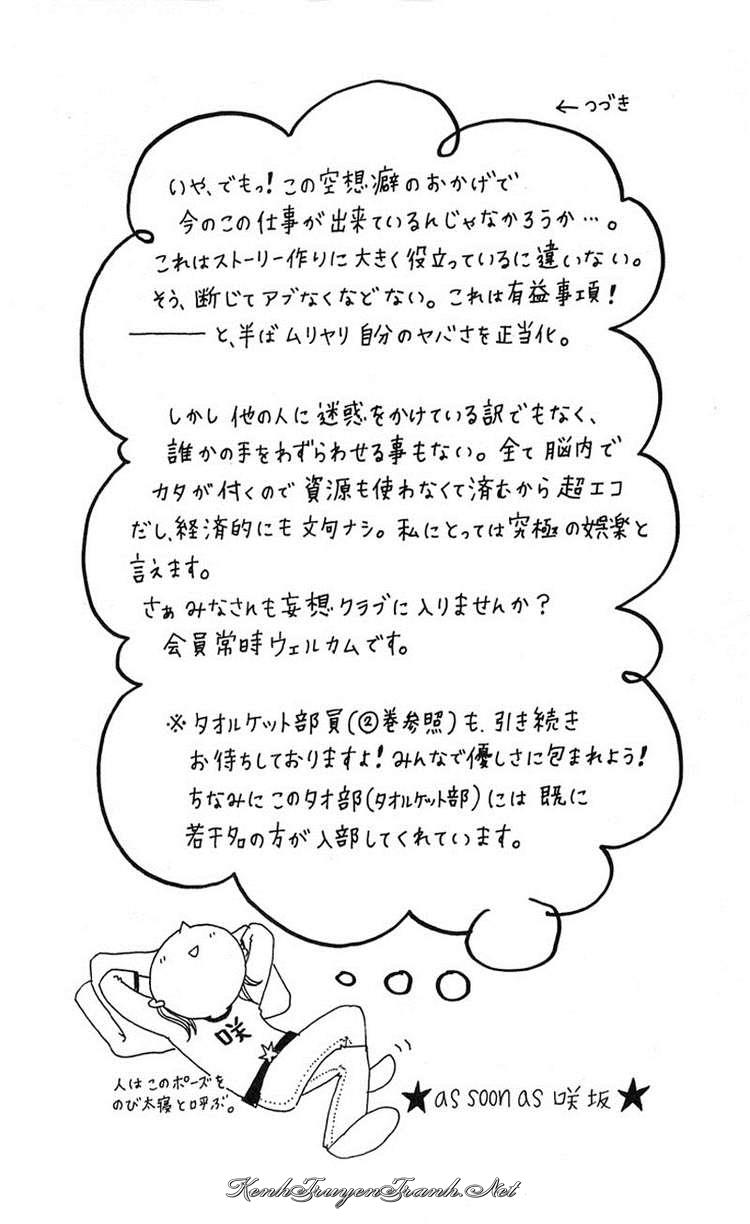 ←つづき
いや、でもっ！この空想癖のおかげで
今のこの仕事が出来ているんじゃなかろうか…。
これはストーリー作りに大きく役立っているに違いない。
そう、断じてアブなくなどない。これは有益事項！
――と、半ばムリヤリ自分のヤバさを正当化。
しかし他の人に迷惑をかけている訳でもなく、
誰かの手をわずらわせる事もない。全て脳内で
カタが付くので資源も使わなくて済むから超エコ
だし、経済的にも文句ナシ。私にとっては究極の娯楽と
言えます。
さぁみなさんも妄想クラブに入りませんか？
会員常時ウェルカムです。
※タオルケット部員(②巻参照)も、引き続き
お待ちしておりますよ！みんなで優しさに包まれよう！
ちなみにこのタオ部(タオルケット部)には既に
若干名の方が入部してくれています。
咲
人はこのポーズを
のび太寝と呼ぶ。
★as soon as 咲坂★
KenhTruyenTranh.Net